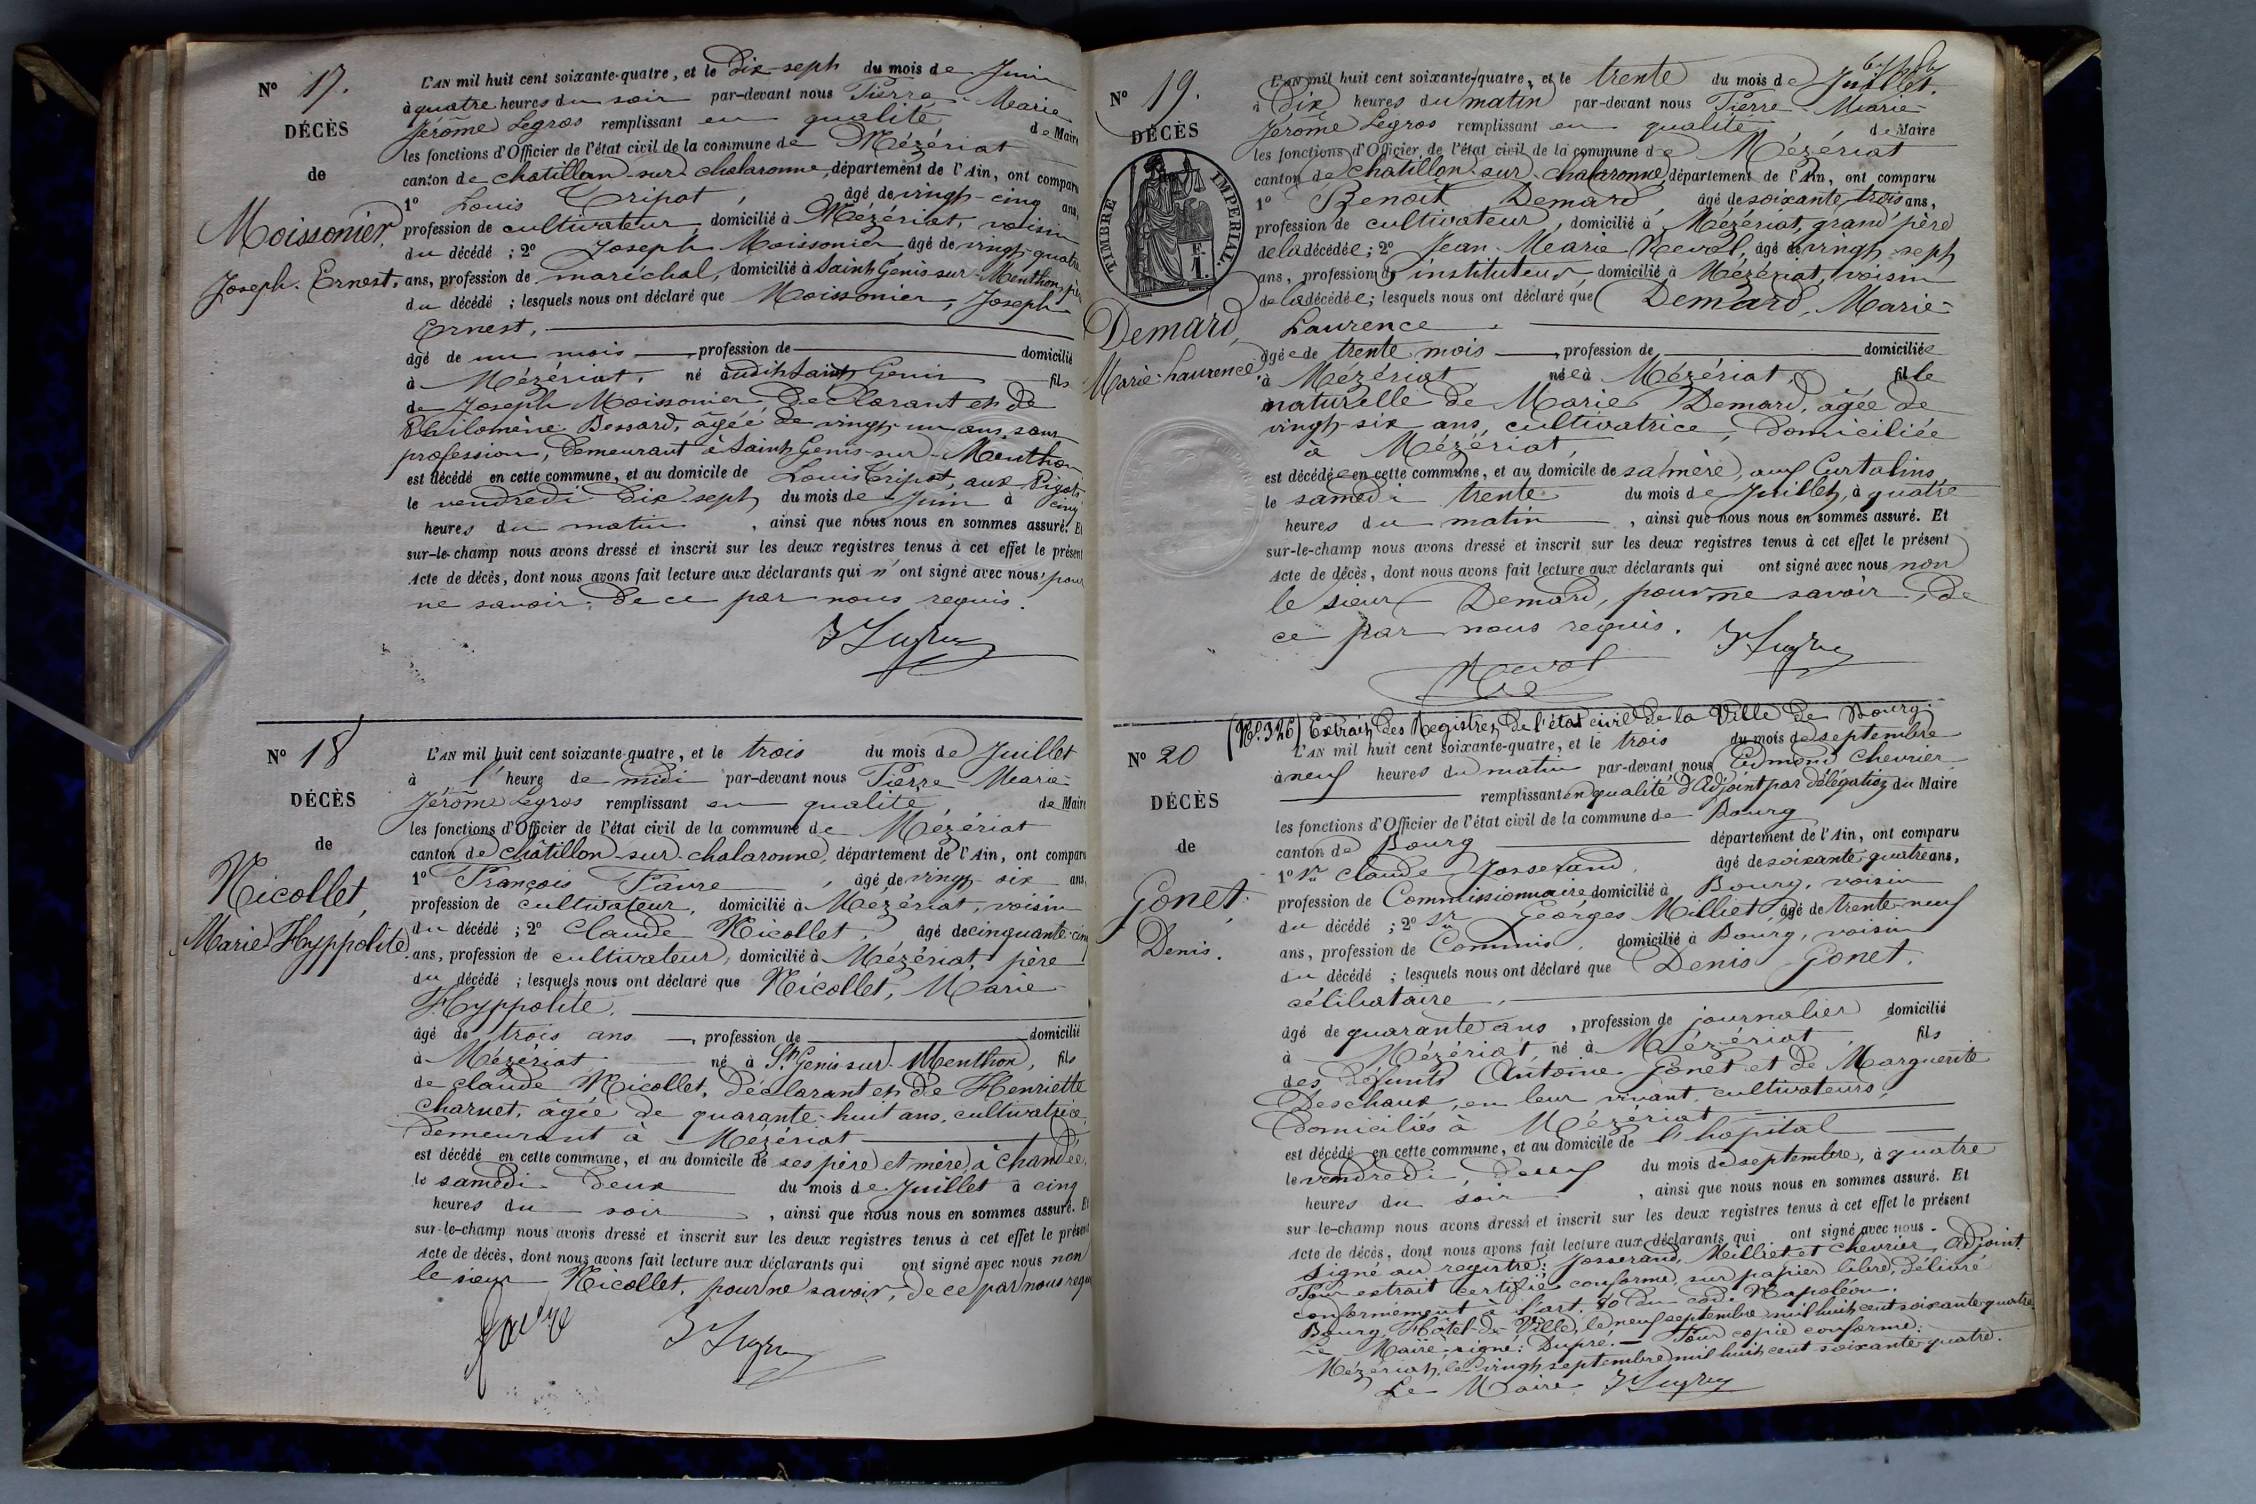 N° 17.
DÉCÈS
de
Moissonier,
Joseph-Ernest.
L'AN mil huit cent soixante-quatre, et le Dix-sept du mois de Juin
à quatre heures du soir par-devant nous Pierre-Marie
Jérôme Legros remplissant en qualité de Maire
les fonctions d'Officier de l'état civil de la commune de Mézériat
canton de chatillon-sur-chalaronne, département de l'Ain, ont comparu
1° Louis Tripot, âgé de vingt-cinq ans,
profession de cultivateur, domicilié à Mézériat, voisin
du décédé ; 2° Joseph Moissonier âgé de vingt-quatre
ans, profession de maréchal, domicilié à Saint Genis-sur-Menthon, père
du décédé ; lesquels nous ont déclaré que Moissonier, Joseph
Ernest,
âgé de un mois, profession de domicilié
à Mézériat, né audit Saint Genis fils
de Joseph Moissonier déclarant et de
Philomène Bessard, âgée de vingt-un ans, sans
profession, demeurant à Saint Genis-sur-Menthon
est décédé en cette commune, et au domicile de Louis Tripot, aux Pigots
le vendredi dix sept du mois de Juin à cinq
heures du matin, ainsi que nous nous en sommes assuré. Et
sur-le-champ nous avons dressé et inscrit sur les deux registres tenus à cet effet le présent
Acte de décès, dont nous avons fait lecture aux déclarants qui n'ont signé avec nous, pour
ne savoir, de ce par nous requis.
N° 18
DÉCÈS
de
Nicollet,
Marie Hyppolite.
L'AN mil huit cent soixante-quatre, et le trois du mois de Juillet
à l'heure de midi par-devant nous Pierre-Marie-
Jérôme Legros remplissant en qualité, de Maire
les fonctions d'Officier de l'état civil de la commune de Mézériat
canton de châtillon-sur-chalaronne, département de l'Ain, ont comparu
1° François Favre, âgé de vingt-six ans,
profession de cultivateur, domicilié à Mézériat, voisin
du décédé ; 2° Claude Nicollet, âgé de cinquante-cinq
ans, profession de cultivateur, domicilié à Mézériat, père
du décédé ; lesquels nous ont déclaré que Nicollet, Marie-
Hyppolite,
âgé de trois ans, profession de domicilié
à Mézériat né à St Genis-sur-Menthon, fils
de Claude Nicollet, déclarant et de Henriette
Charvet, âgée de quarante-huit ans, cultivatrice,
demeurant à Mézériat
est décédé en cette commune, et au domicile de ses père et mère, à Chandée,
le samedi deux du mois de Juillet à cinq
heures du soir, ainsi que nous nous en sommes assuré. Et
sur-le-champ nous avons dressé et inscrit sur les deux registres tenus à cet effet le présent
Acte de décès, dont nous avons fait lecture aux déclarants qui ont signé avec nous non
le sieur Nicollet, pour ne savoir, de ce par nous requis
favre
N° 19.
DÉCÈS
TIMBRE IMPÉRIAL.
F.
1.
Demard,
Marie-Laurence
L'AN mil huit cent soixante-quatre, et le trente du mois de Juillet.
à Dix heures du matin par-devant nous Pierre-Marie-
Jérôme Legros remplissant en qualité de Maire
les fonctions d'Officier de l'état civil de la commune de Mézériat
canton de chatillon-sur-chalaronne, département de l'Ain, ont comparu
1° Benoit Demard âgé de soixante trois ans,
profession de cultivateur, domicilié à Mézériat, grand'père
de la décédée ; 2° Jean-Marie Nevol, âgé de vingt-sept
ans, profession d'instituteur, domicilié à Mézériat, voisin
de la décédée ; lesquels nous ont déclaré que Demard, Marie-
Laurence
âgée de trente mois, profession de domiciliée
à Mézériat née à Mézériat, fille
naturelle de Marie Demard, âgée de
vingt-six ans, cultivatrice, domiciliée
à Mézériat,
est décédée en cette commune, et au domicile de sa mère, aux Curtalins,
le samedi trente du mois de Juillet, à quatre
heures du matin, ainsi que nous nous en sommes assuré. Et
sur-le-champ nous avons dressé et inscrit sur les deux registres tenus à cet effet le présent
Acte de décès, dont nous avons fait lecture aux déclarants qui ont signé avec nous non
le sieur Demard, pour ne savoir, de
ce par nous requis.
Nevol
N° 20
DÉCÈS
de
Gonet,
Denis.
(N° 326) Extrait des Registres de l'état civil de la Ville de Bourg.
L'AN mil huit cent soixante-quatre, et le trois du mois de septembre
à neuf heures du matin par-devant nous Edmond Chevrier
remplissant en qualité d'Adjoint par délégation du Maire
les fonctions d'Officier de l'état civil de la commune de Bourg
canton de Bourg département de l'Ain, ont comparu
1° Sr Claude Josserand, âgé de soixante quatre ans,
profession de Commissionnaire domicilié à Bourg, voisin
du décédé ; 2° Sr Georges Milliet, âgé de trente-neuf
ans, profession de Commis, domicilié à Bourg, voisin
du décédé ; lesquels nous ont déclaré que Denis Gonet,
célibataire,
âgé de quarante ans, profession de journalier domicilié
à Mézériat, né à Mézériat, fils
des défunts Antoine Gonet et de Marguerite
Deschaux, en leur vivant cultivateurs,
domiciliés à Mézériat
est décédé en cette commune, et au domicile de l'hopital
le vendredi, deux du mois de septembre, à quatre
heures du soir, ainsi que nous nous en sommes assuré. Et
sur-le-champ nous avons dressé et inscrit sur les deux registres tenus à cet effet le présent
Acte de décès, dont nous avons fait lecture aux déclarants qui ont signé avec nous.
Signé au registre : Josserand, Milliet et Chevrier, Adjoint.
Pour extrait certifié conforme, sur papier libre, délivré
conformément à l'art. 80 du code Napoléon.
Bourg, Hôtel-de-Ville, le neuf septembre mil huit cent soixante-quatre.
Le Maire-signé : Dupré. — Pour copie conforme :
Mézériat, le vingt septembre mil huit cent soixante-quatre.
Le Maire,